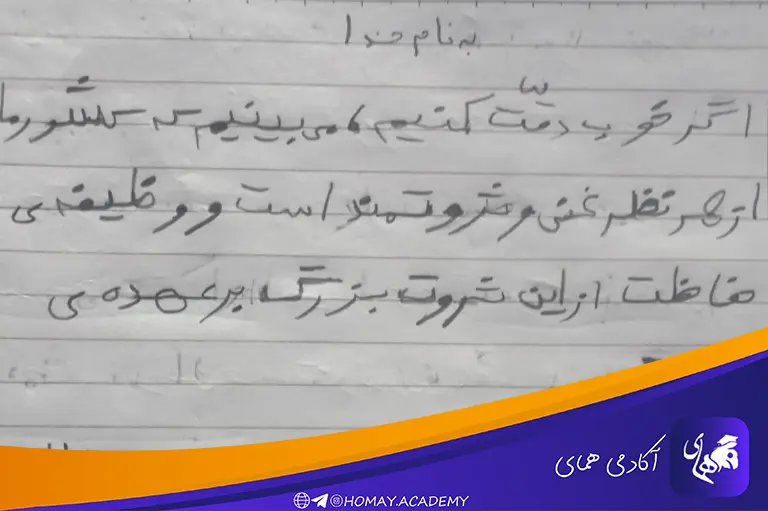 به نام خدا
اگر خوب دقّت کنیم، می بینیم که کشور ما
از هر نظر غنی و ثروتمند است و وظیفه ی
حفاظت از این ثروت بزرگ بر عهده ی
آکادمی همای
همای
@HOMAY.ACADEMY